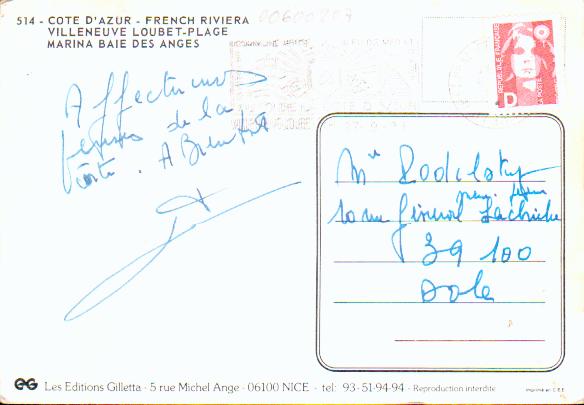 514 - COTE D'AZUR - FRENCH RIVIERA
VILLENEUVE LOUBET-PLAGE
MARINA BAIE DES ANGES
00600207
REPUBLIQUE FRANÇAISE
D
LA POSTE
Affectueuses
pensées de la
Côte. A Bientôt
10 rue Général Lachiche
39 100
Dole
Les Editions Gilletta · 5 rue Michel Ange · 06100 NICE · tel: 93·51·94·94 · Reproduction interdite
Imprimé en C.E.E